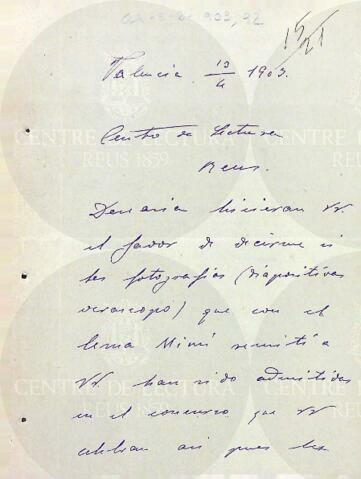 15/21
Valencia 13/4 1903.
Centro de Lectura
Reus.
Desearia hicieran VV
el favor de decirme si
las fotografías (diapositivas
veráscopo) que con el
lema Mimí remití a
VV. han sido admitidas
en el concurso que VV
celebran asi pues les
CENTRE DE LECTURA
REUS 1859
CENTRE DE LECTURA
REUS 1859
CENTRE DE LECTURA
CENTRE DE LECTURA